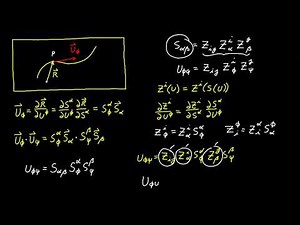 P
U⃗_Φ
R⃗
R⃗
U⃗_Φ = ∂R⃗/∂U^Φ = ∂R⃗/∂S^α ∂S^α/∂U^Φ = S^α_Φ S⃗_α
U⃗_Φ · U⃗_Ψ = S^α_Φ S⃗_α · S^β_Ψ S⃗_β
U_ΦΨ = S_αβ S^α_Φ S^β_Ψ
S_αβ = Z_ij Z^i_α Z^j_β
U_ΦΨ = Z_ij Z^i_Φ Z^j_Ψ
Z^i(U) = Z^i(S(U))
∂Z^i/∂U^Φ = ∂Z^i/∂S^α ∂S^α/∂U^Φ
Z^i_Φ = Z^i_α S^α_Φ
U_ΦΨ = Z_ij Z^i_α S^α_Φ Z^j_β S^β_Ψ